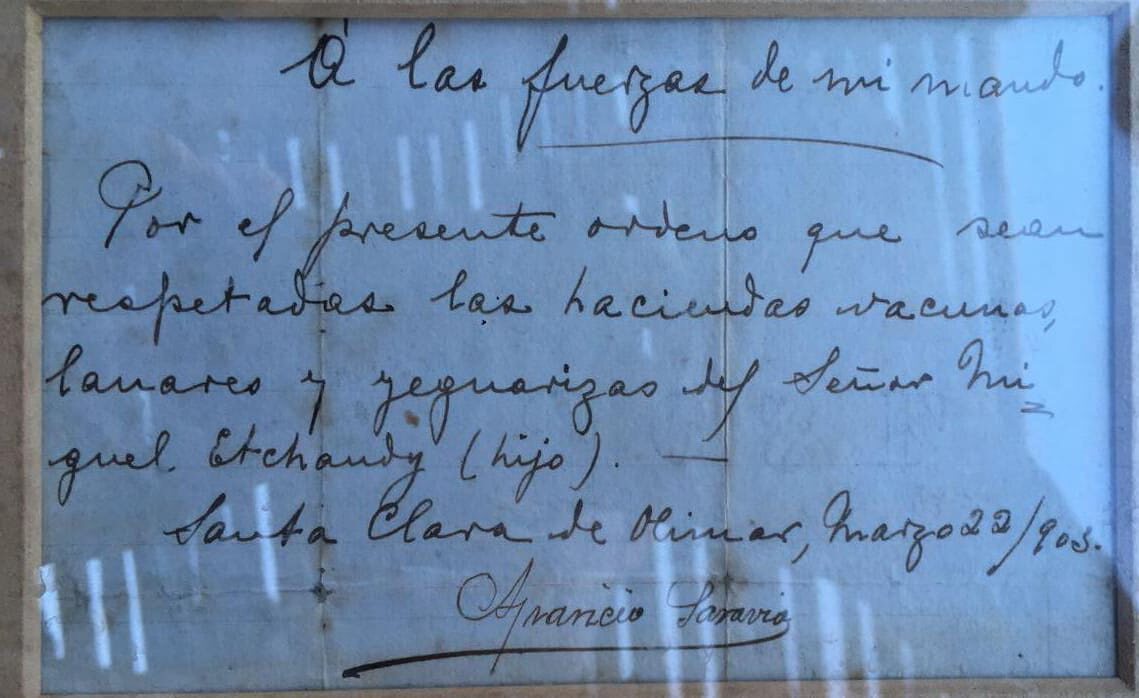 Á las fuerzas de mi mando.
Por el presente ordeno que sean
respetadas las haciendas vacunas,
lanares y yeguarizas del Señor Mi
guel Etchandy (hijo).
Santa Clara de Olimar, Marzo 22/903.
Aparicio Saravia